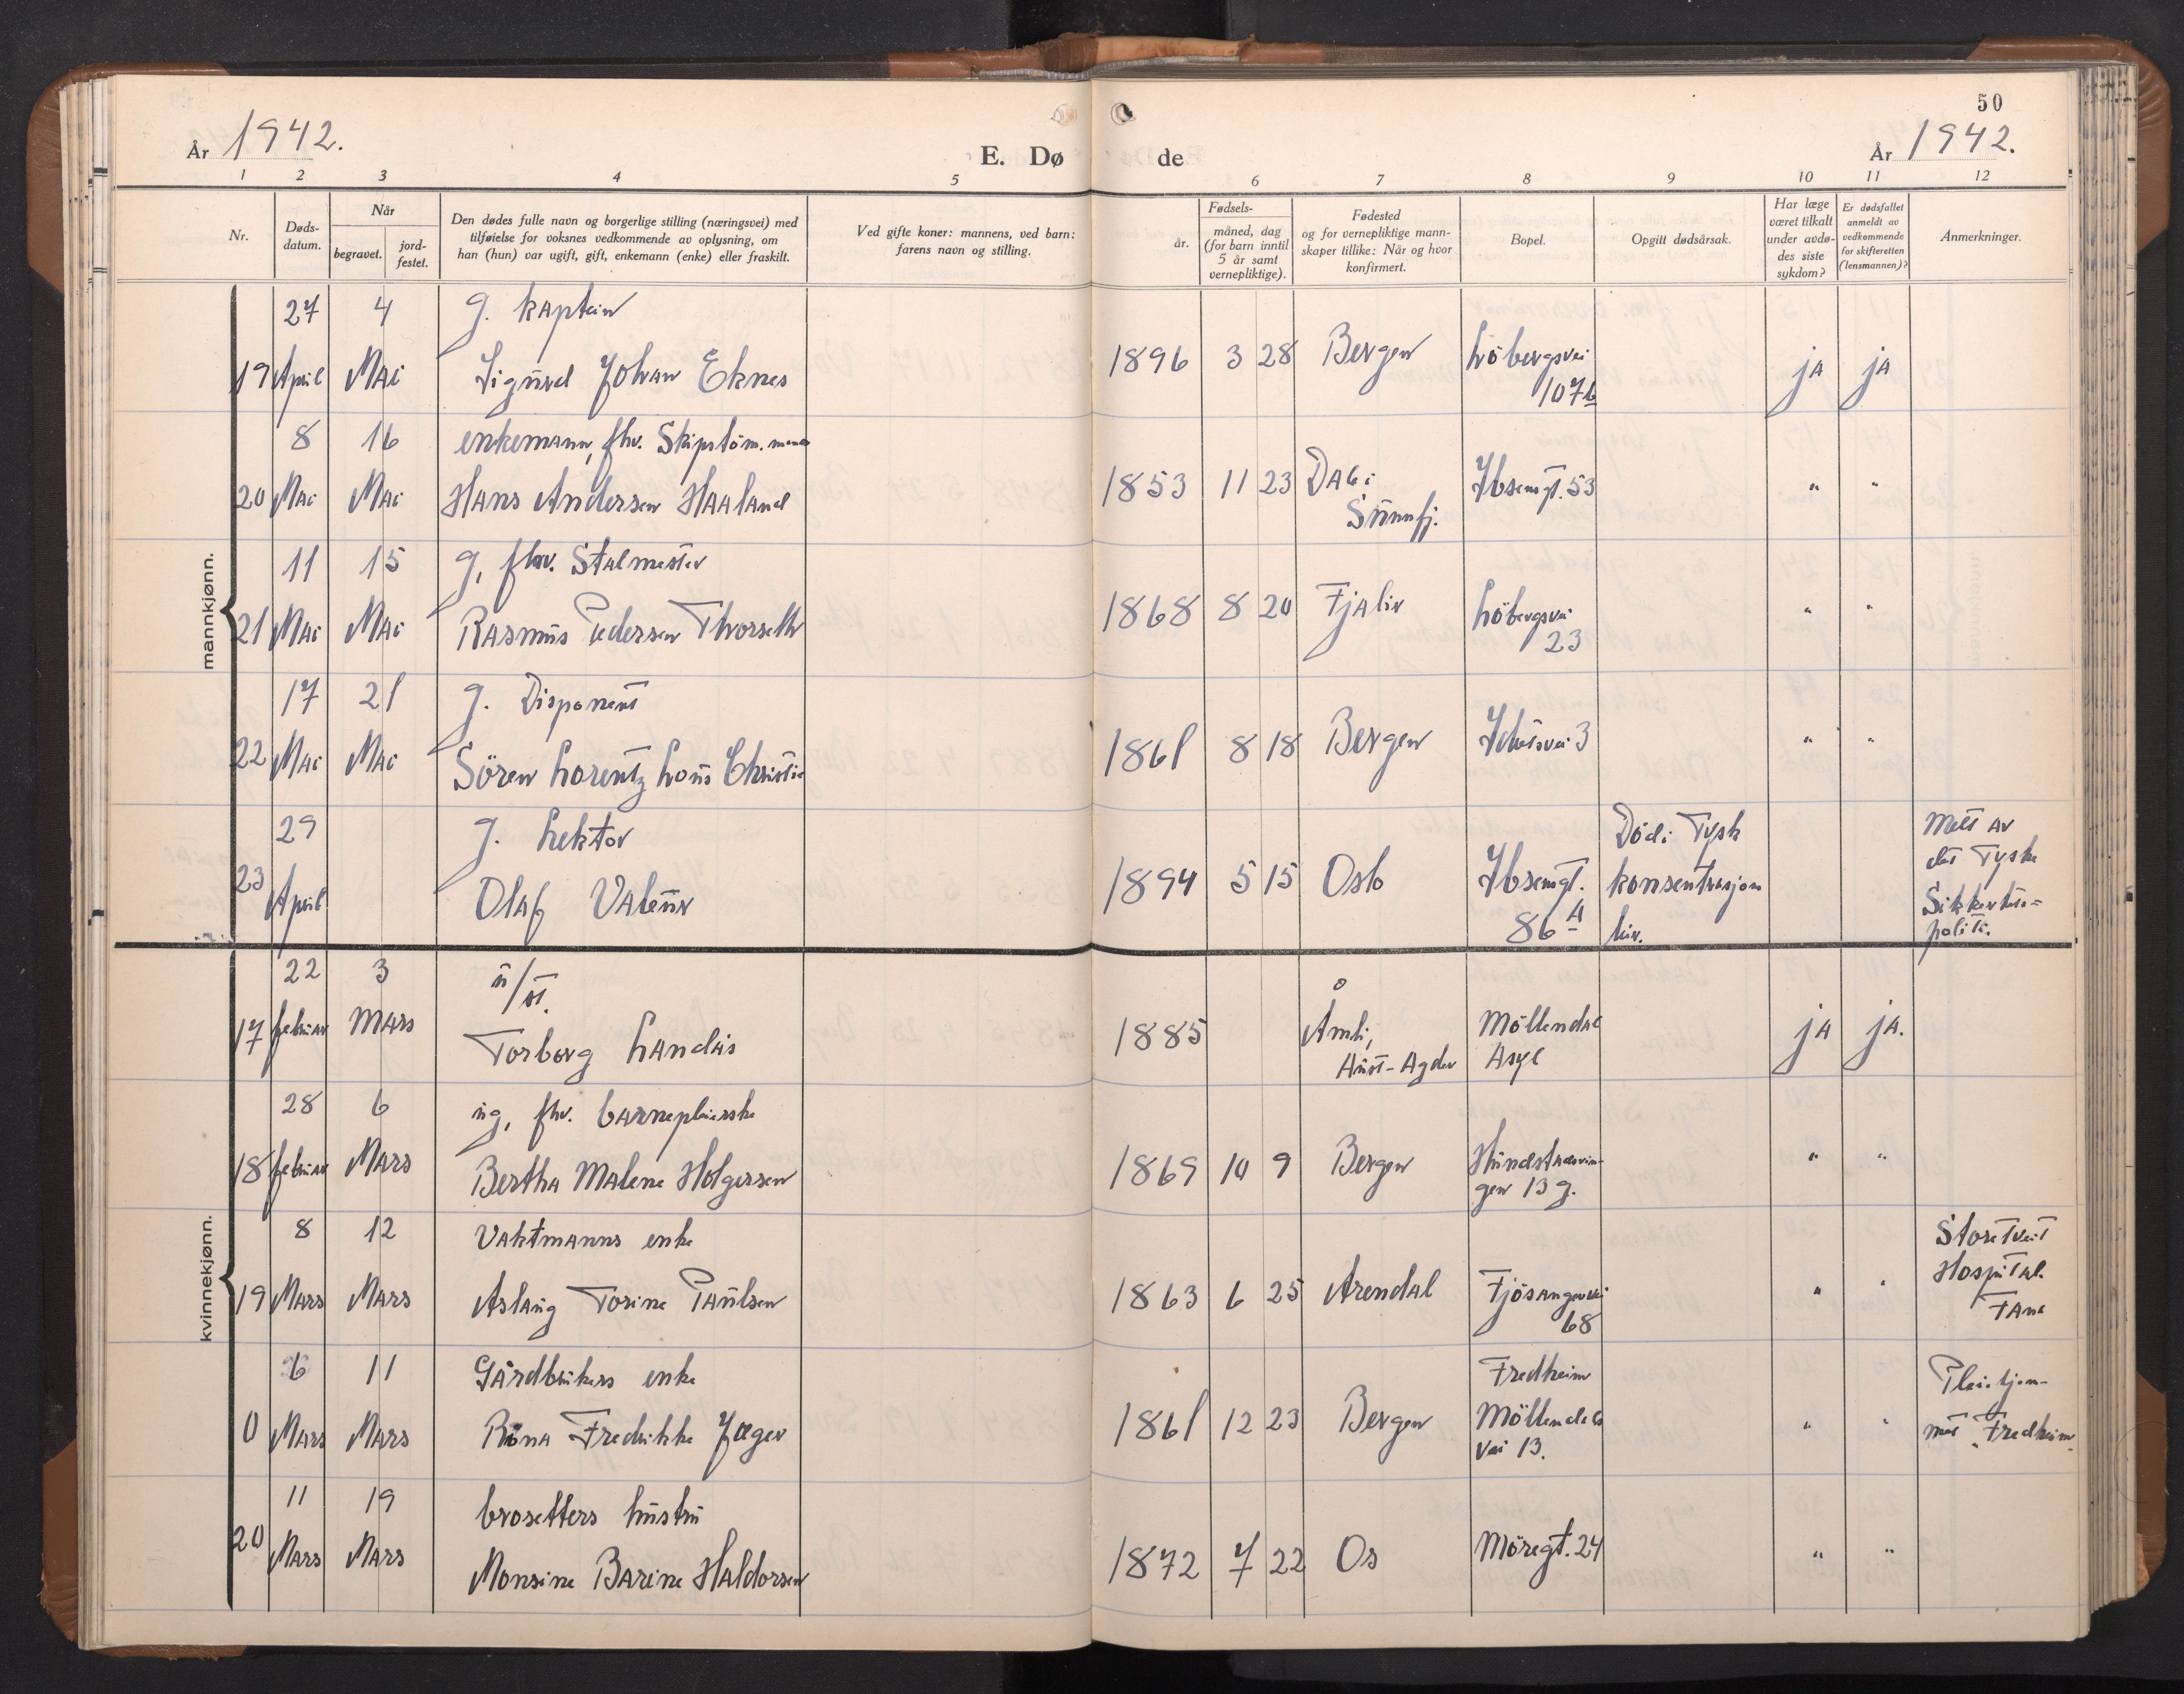 50
År 1942.
E. Dø de
År 1942.
1 2 3 4 5 6 7 8 9 10 11 12
Nr.
Døds-
datum.
Når
begravet.
jord-
festet.
Den dødes fulle navn og borgerlige stilling (næringsvei) med
tilføielse for voksnes vedkommende av oplysning, om
han (hun) var ugift, gift, enkemann (enke) eller fraskilt.
Ved gifte koner: mannens, ved barn:
farens navn og stilling.
Fødsels-
år.
måned, dag
(for barn inntil
5 år samt
vernepliktige).
Fødested
og for vernepliktige mann-
skaper tillike: Når og hvor
konfirmert.
Bopel.
Opgitt dødsårsak.
Har læge
været tilkalt
under avdø-
des siste
sykdom?
Er dødsfallet
anmeldt av
vedkommende
for skifteretten
(lensmannen)?
Anmerkninger.
mannkjønn.
27 4 g. kaptein
19 April Mai Sigurd Johan Eknes 1896 3 28 Bergen Löbergsvei
107b ja ja
8 16 enkemann, fhv. Skipstöm.mann
20 Mai Mai Hans Andersen Haaland 1853 11 23 Dale i
Sunnfj. Ibsensgt. 53 " "
11 15 g, fhv. Stalmester
21 Mai Mai Rasmus Pedersen Thorseth 1868 8 20 Fjaler Löbergsvei
23 " "
17 21 g. Disponent
22 Mai Mai Sören Lorentz Lous Christie 1861 8 18 Bergen 3 " "
29 g. Lektor
23 April Olaf Valeur 1894 5 15 Oslo Ibsensgt.
86 A
Död i Tysk
konsentrasjons
leir.
Melt av
det Tyske
Sikkerhets=
politi.
kvinnekjønn.
22 3 u/st.
17 februar Mars Torborg Landås 1885 Åmli,
Aust-Agder
Möllendal
Asyl ja ja.
28 6 ug, fhv. barnepleierske
18 februar Mars Bertha Malene Holgersen 1869 10 9 Bergen Hunstadsvin-
gen 13 g. " "
8 12 Vaktmanns enke
19 Mars Mars Aslaug Torine Paulsen 1863 6 25 Arendal Fjösangervei
68 " "
Storetveit
Hospital.
Fana
6 11 Gårdbrukers enke
0 Mars Mars Fredrikke Jæger 1861 12 23 Bergen
Fredheim
Möllendals
vei 13. " "
Pleiehjem-
met "Fredheim"
11 19 brosetters hustru
20 Mars Mars Monsine Barine Haldorsen 1872 7 22 Os Möregt. 24 " "